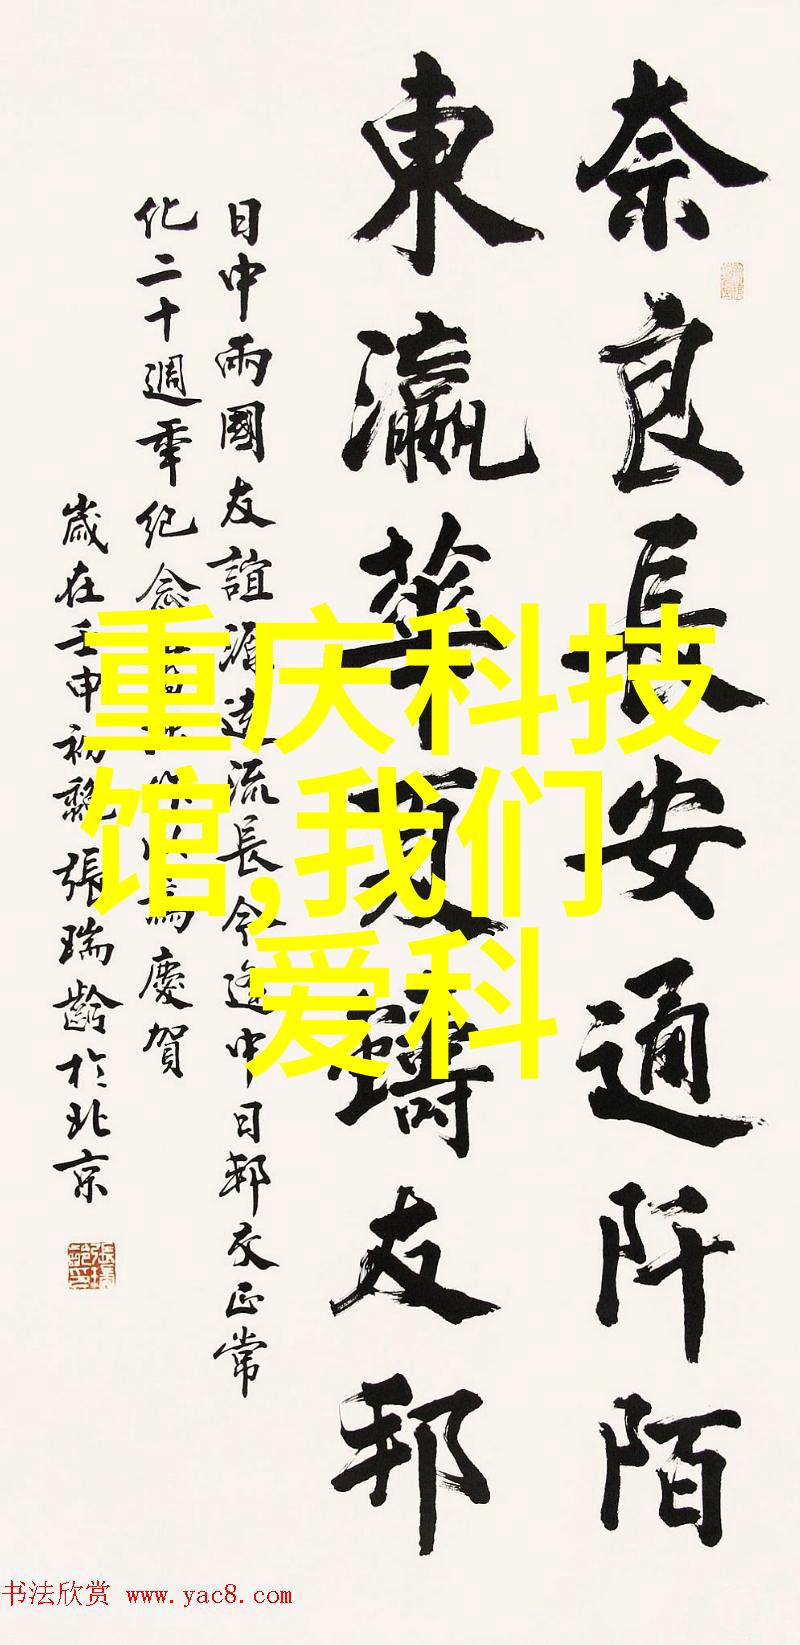 奈良長安通阡陌
東瀛華夏鑄友邦
日中兩國友誼源遠流長今逢中日邦交正常
化二十週年紀念以爲慶賀
歲在壬申初龝張瑞齡於北京
重庆科技
馆,我们
爱科
书法欣赏 www.yac8.com